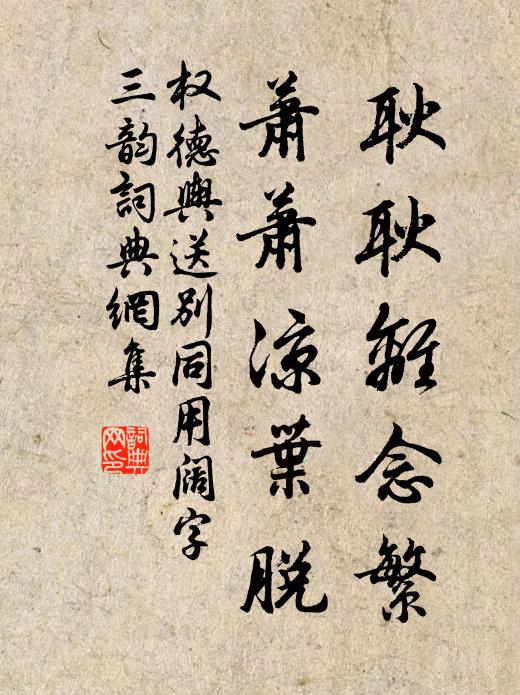 耿耿離念繁
蕭蕭涼葉脫
权德輿送別同用阔字
三韵詞典網集
詞典网印